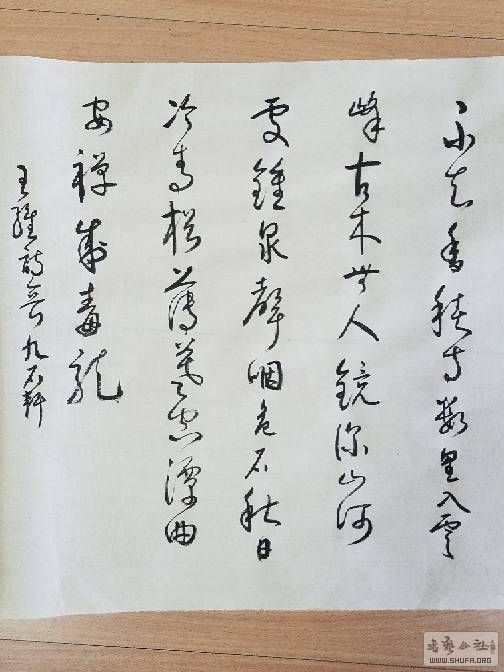 不知香積寺數里入雲
峰古木無人鏡深山河
處鍾泉聲咽危石秋日
冷青松薄暮空潭曲
安禪制毒龍
王維詩 九石軒
书艺公社
WWW.SHUFA.ORG